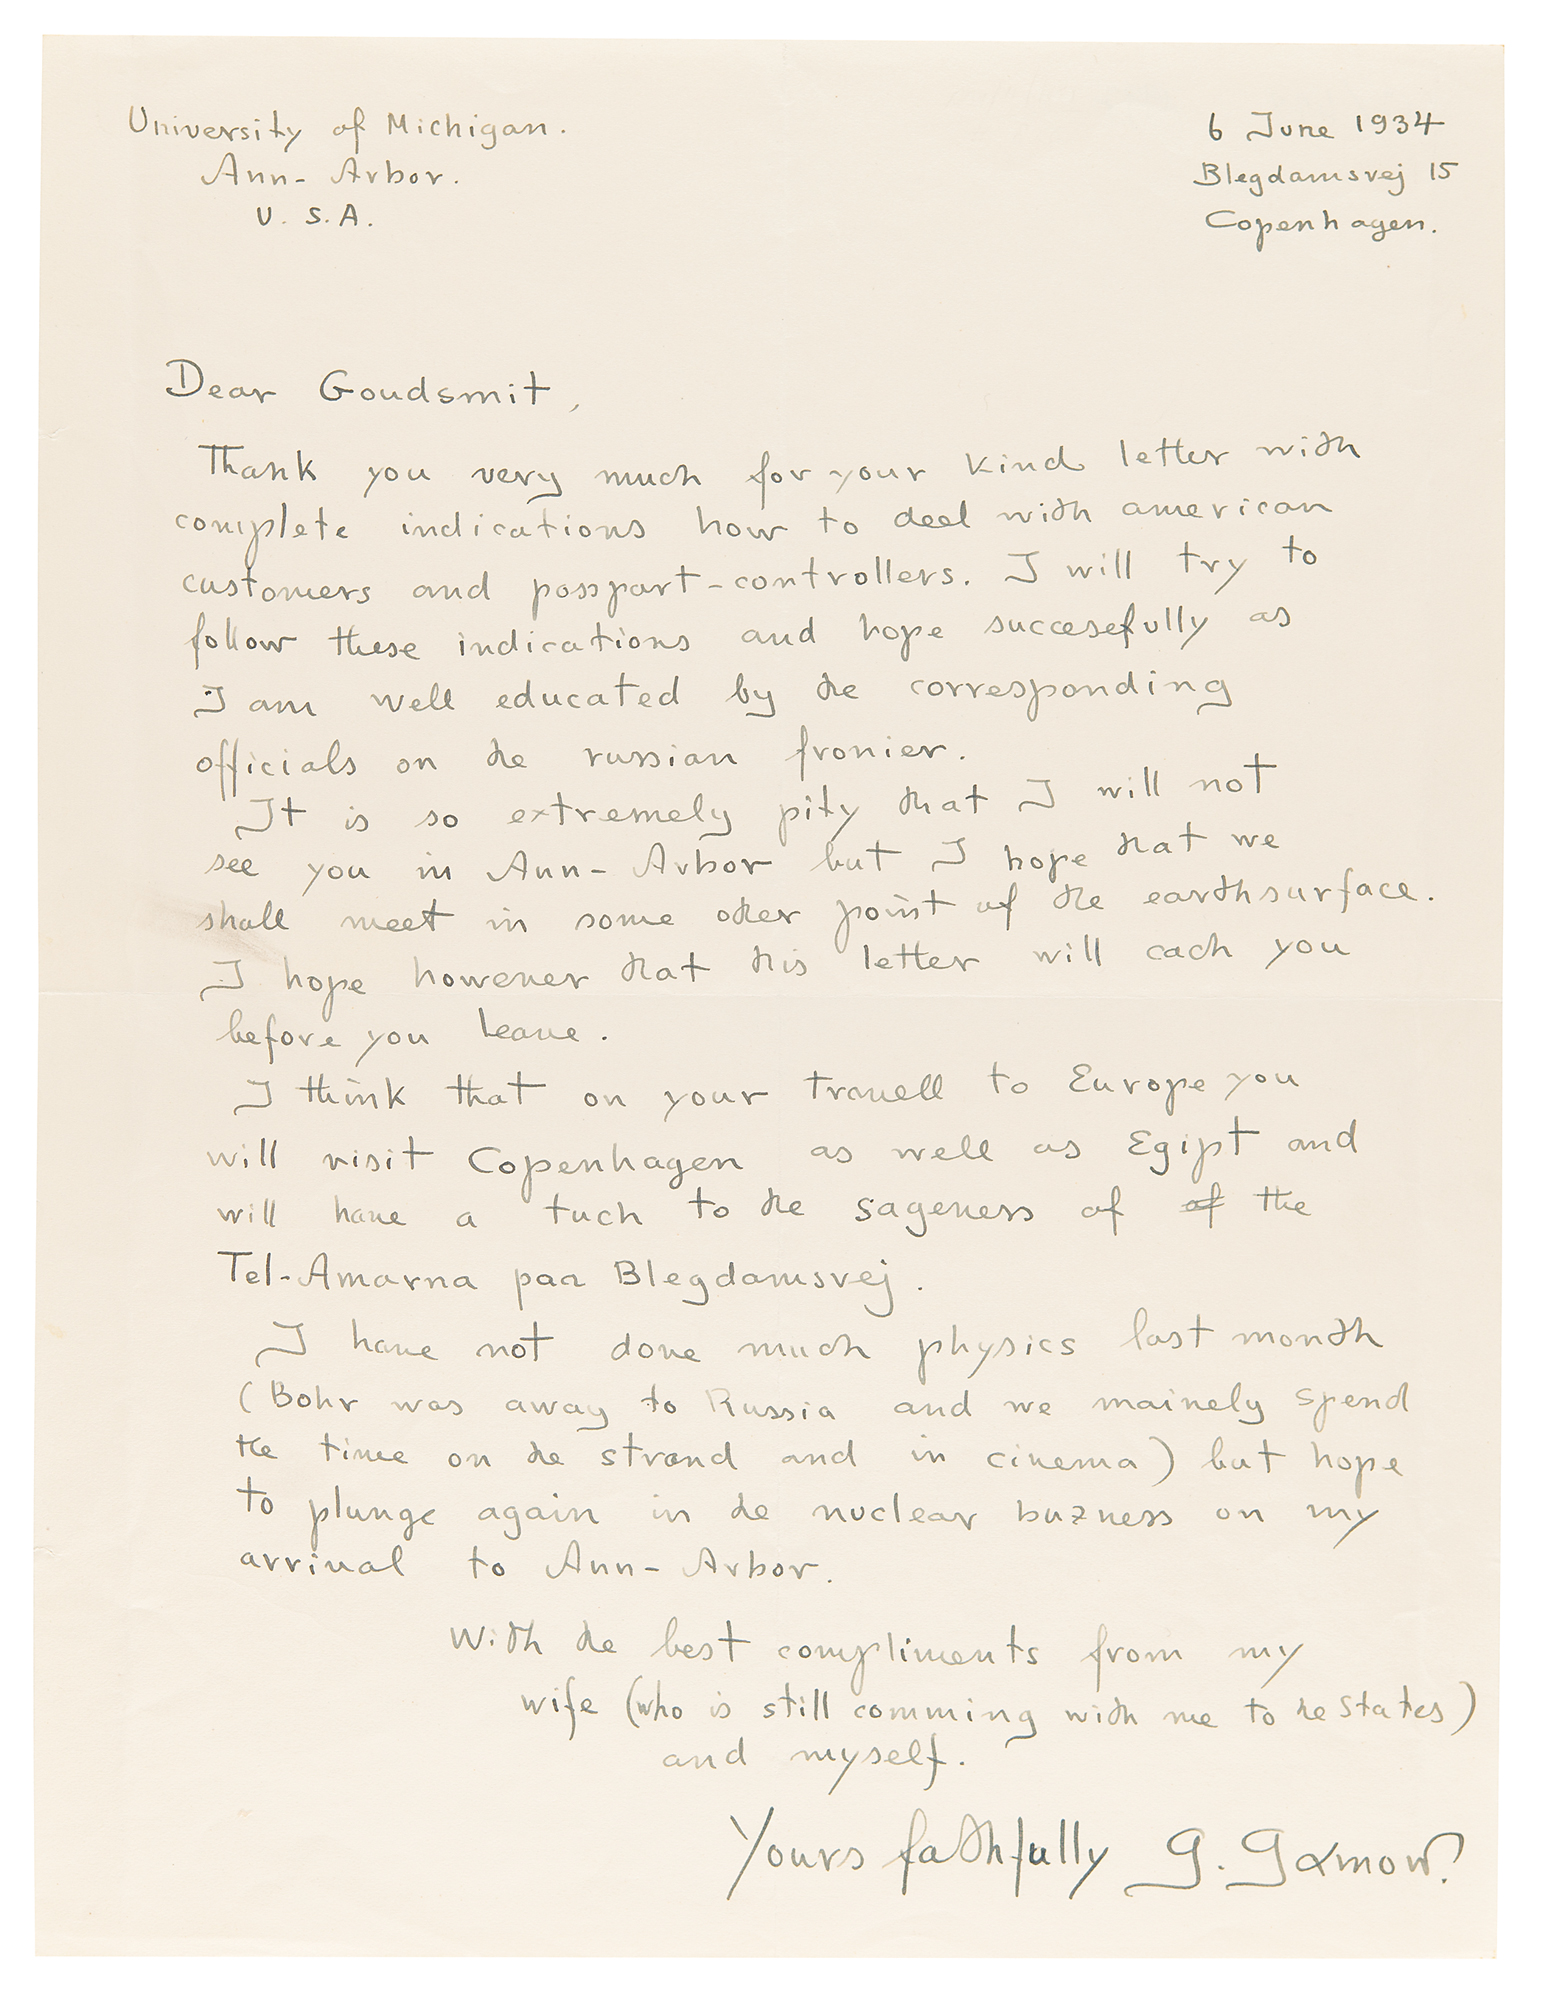 University of Michigan.
Ann-Arbor.
U.S.A.
6 June 1934
Blegdamsvej 15
Copenhagen.
Dear Goudsmit,
Thank you very much for your kind letter with
complete indications how to deel with american
customers and posspart-controllers. I will try to
follow these indications and hope succesefully as
I am well educated by the corresponding
officials on the russian fronier.
It is so extremely pity that I will not
see you in Ann-Arbor but I hope that we
shall meet in some other point of the earthsurface.
I hope however that this letter will cach you
before you leave.
I think that on your travell to Europe you
will visit Copenhagen as well as Egipt and
will have a tuch to the sageness of of the
Tel-Amarna paa Blegdamsvej.
I have not done much physics last month
(Bohr was away to Russia and we mainely spend
the time on the strand and in cinema) but hope
to plunge again in the nuclear buzness on my
arrival to Ann-Arbor.
With the best compliments from my
wife (who is still comming with me to the States)
and myself.
Yours fathfully G. Gamow.